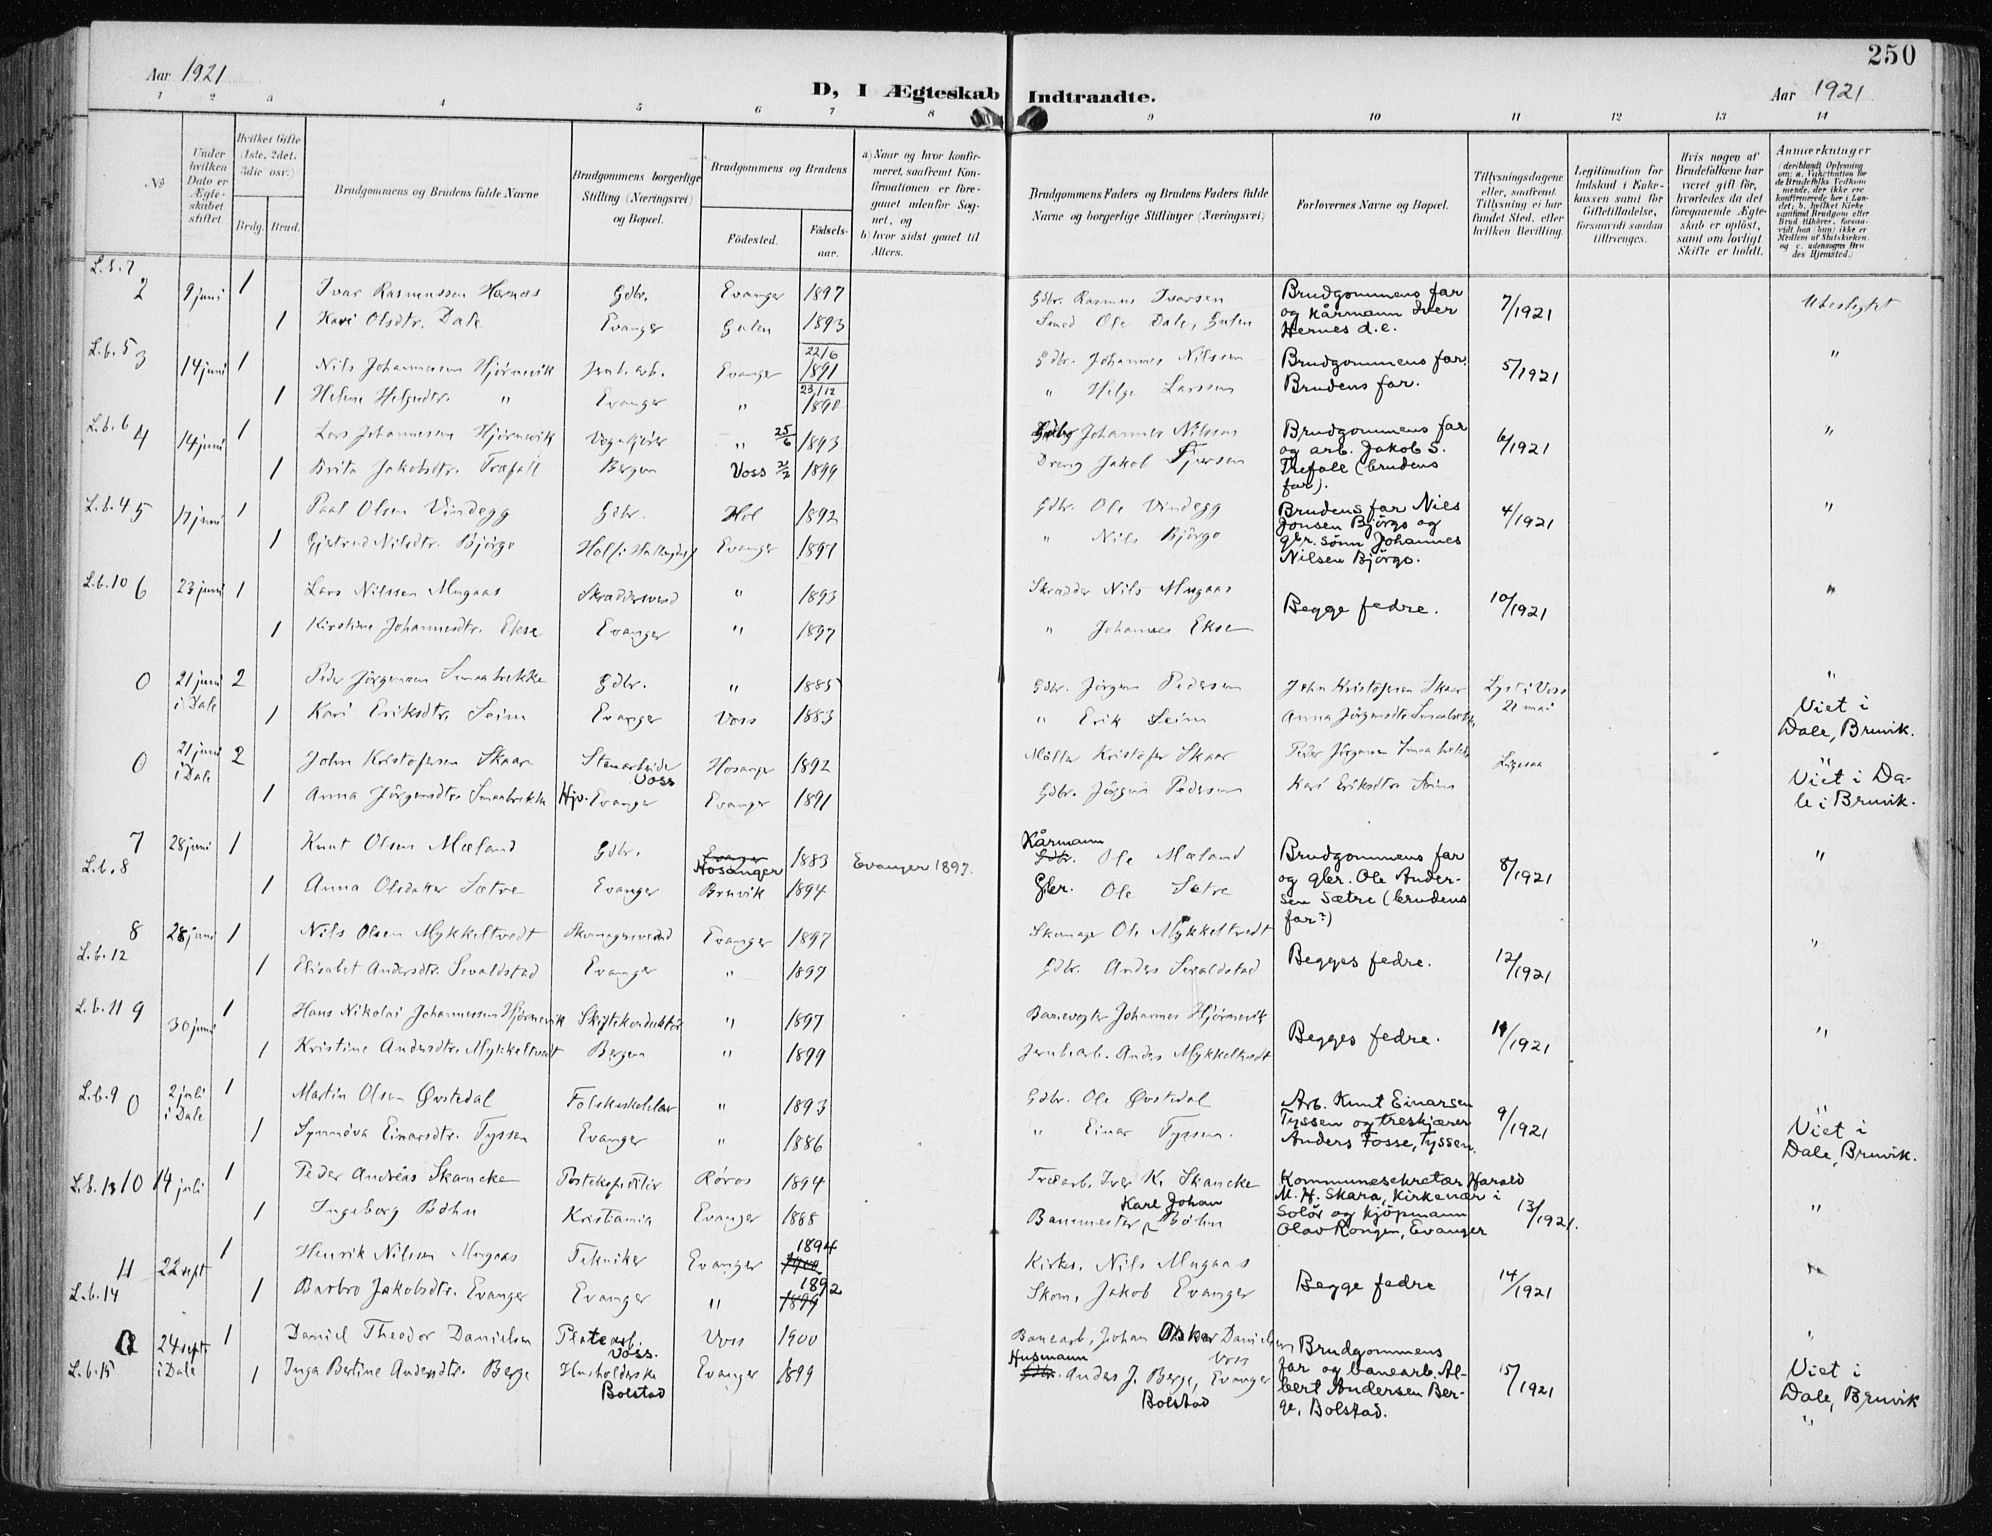 250
Aar 1921
D, I Ægteskab Indtraadte.
Aar 1921
1 2 3 4 5 6 7 8 9 10 11 12 13 14
No
Under hvilken Dato er Ægteskabet stiftet
Hvilket Gifte (1ste, 2det, 3die osv.)
Brdg. Brud.
Brudgommens og Brudens fulde Navne
Brudgommens borgerlige Stilling (Næringsvei) og Bopæl.
Brudgommens og Brudens
Födested.
Födsels-aar.
a) Naar og hvor konfir-
meret, saafremt Kon-
firmationen er fore-
gaaet udenfor Sog-
net, og
b) hvor sidst gaaet til
Alters.
Brudgommens Faders og Brudens Faders fulde
Navne og borgerlige Stillinger (Næringsvei)
Forlovernes Navne og Bopæl.
Tillysningsdagene
eller, saafremt
Tillysning ei har
fundet Sted, efter
hvilken Bevilling.
Legitimation for
Indskud i Enke-
kassen samt for
Giftetilladelse,
forsaavidt saadan
tiltrænges.
Hvis nogen af
Brudefolkene har
været gift før,
hvorledes da det
foregaaende Ægte-
skab er opløst,
samt om lovligt
Skifte er holdt.
Anmærkninger
L.b.7
2 9 juni 1 Ivar Rasmussen Hernes Gdbr. Evanger 1897 Gdbr. Rasmus Ivarsen Brudgommens far og kårmann Iver Hernes d.e. 7/1921 Ubeslegtet
1 Kari Olsdtr. Dale Evanger 1893 Smed Ole Dale,
L.b.5 3 14 juni 1 Nils Johannessen Hjørnevik Jernb.arb. Evanger 22/6 1891 Gdbr. Johannes Nilssen Brudgommens far. Brudens far. 5/1921 "
1 Helene Helgesdtr. " Evanger " 23/12 1890 " Helge Larssen
L.b.6 4 14 juni 1 Lars Johannessen Hjørnevik Vognfjører " 25/6 1893 Johannes Nilssen Brudgommens far og arb. Jakob S. Trefall (brudens far). 6/1921 "
1 Brita Jakobsdtr. Træfall Bergen Voss 1899 Dreng Jakob
L.b.4 5 17 juni 1 Paal Olsen Vindegg Gdbr. Hol 1892 Gdbr. Ole Vindegg Brudens far Nils Jonsen Björgo og gbr. sönn Johannes Nilsen Björgo. 4/1921 "
1 Gjertrud Nilsdtr. Björgo Hol i Hallingdal Evanger 1891 " Nils Björgo
L.b.10 6 23 juni 1 Lars Nilssen Mugaas Skræddersvend " 1893 Skrædder Nils Mugaas Begge fedre. 10/1921 "
1 Kirstine Johannesdtr. Ekse Evanger " 1897 " Johannes Ekse
0 21 juni i Dale 2 Peder Jörgensen Smaabrekke Gdbr. " 1885 Gdbr. Jörgen Pedersen John Kristofersen Skaar Lyst i Voss 21 mai " Viet i Dale, Bruvik.
1 Kari Eriksdtr. Seim Evanger Voss 1883 " Erik Seim Anna Jörgensdtr. Smaabrekke
0 21 juni i Dale 2 John Kristofersen Skaar Stenarbeide Voss Hosanger 1892 Kristofer Skaar Peder Jörgensen Smaabrekke Ligesaa " Viet i Dale i Bruvik.
1 Anna Jörgensdtr. Smaabrekke Hjv. Evanger Evanger 1891 Gdbr. Jörgen Pedersen Kari Eriksdtr. Seim
7 L.b.8 28 juni 1 Knut Olsen Mæland Gdbr. Evanger Hosanger 1883 Evanger 1897. Kårmann Gdbr. Ole Mæland Brudgommens far og gbr. Ole Andersen Sætre (brudens far?) 8/1921 "
1 Anna Olsdatter Sætre Evanger Bruvik 1894 Gbr. Ole Sætre
8 L.b.12 28 juni 1 Nils Olsen Mykkeltvedt Skomagersvend Evanger 1897 Skomager Ole Mykkeltvedt Begges fedre. 12/1921 "
1 Elisabet Andersdtr. Sevaldstad Evanger " 1897 Gdbr. Anders Sevaldstad
L.b.11 9 30 juni 1 Hans Nikolai Johannessen Hjørnevik Skiftekonduktör " 1897 Banevogter Johannes Hjørnevik Begges fedre. 11/1921 "
1 Kristine Andersdtr. Mykkeltvedt Bergen " 1899 Jernb.arb. Anders Mykkeltvedt
L.b.9 0 2 juli i Dale 1 Martin Olsen Øvstedal Folkeskolelær " 1893 Gdbr. Ole Øvstedal Arb. Knut Einarsen Tyssen og treskjærer Anders Fosse, Tyssen. 9/1921 " Viet i Dale, Bruvik.
1 Synnöva Einarsdtr. Tyssen Evanger " 1886 " Einar Tyssen.
L.b.13 10 14 juli 1 Peder Andréas Skancke Postekspeditör Røros 1894 Træarb. Iver K. Skancke Kommunesekretær Harald M. H. Skara, Kirkenær i Solör og kjöpmann Olav Rongen, Evanger 13/1921. "
1 Ingeborg Böhn Kristiania Evanger 1888 Banemester Karl Johan Böhn
11 L.b.14 22 sept 1 Henrik Nilssen Mugaas Tekniker Evanger 1894 1900 Kirkes. Nils Mugaas Begge fedre 14/1921 "
1 Barbro Jakobsdtr. Evanger Evanger " 1892 1899 Skom, Jakob Evanger
0 L.b.15 24 sept i Dale 1 Daniel Theodor Danielsen Voss. Voss 1900 Banearb, Johan Oskar Danielsen Voss Brudgommens far og banearb. Albert Andersen Berge, Bolstad. 15/1921 " Viet i Dale, Bruvik
1 Inga Bertine Andersdtr. Berge Husholderske Bolstad Evanger 1899 Husmann Gdbr. Anders J. Berge, Evanger Bolstad "